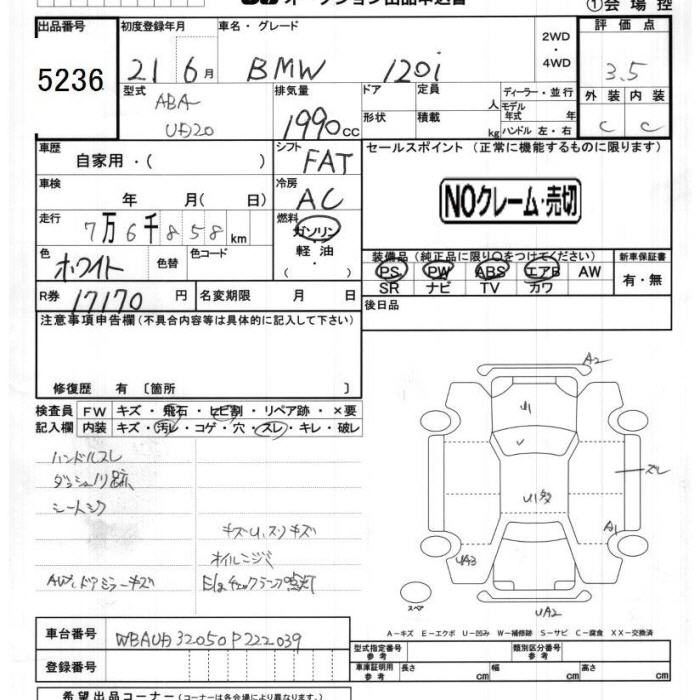 オークション出品申込書
①会場控
出品番号
5236
初度登録年月
21 6月
車名・グレード
BMW 120i
2WD
・
4WD
評価点
3.5
外装 内装
C C
型式
ABA-
UD20
排気量
1990cc
ドア
定員
人
形状
積載
kg
ディーラー・並行
モデル年式 年
ハンドル 左・右
車歴
自家用・( )
シフト
FAT
車検
年 月( 日)
冷房
AC
走行
7万6千858km
燃料
ガソリン
軽油
( ・ )
色
ホワイト
色替
色コード
R券
17170円
名変期限 月 日
セールスポイント (正常に機能するものに限ります)
NOクレーム・売切
装備品 (純正品に限り○をつけてください)
PS PW ABS エアB AW
SR ナビ TV カワ
新車保証書
有・無
後日品
注意事項申告欄 (不具合内容等は具体的に記入して下さい)
修復歴 有 〔箇所 〕
検査員記入欄
FW キズ・飛石・ヒビ割・リペア跡・×要
内装 キズ・汚レ・コゲ・穴・スレ・キレ・破レ
ハンドルスレ
ダッシュ
シート
キズU、スリキズ
オイルニジミ
AW、ドアミラーキズ
E/gチェックランプ点灯
A2
U1
スレ
A1
UA3
UA2
スペア
A-キズ E-エクボ U-凹み W-補修跡 S-サビ C-腐食 XX-交換済
車台番号
WBAUD32050P222039
登録番号
型式指定番号
参考
類別区分番号
参考
車庫証明用
参考
長さ cm 幅 cm 高さ cm
希望出品コーナー (コーナーは各会場により異なります。)